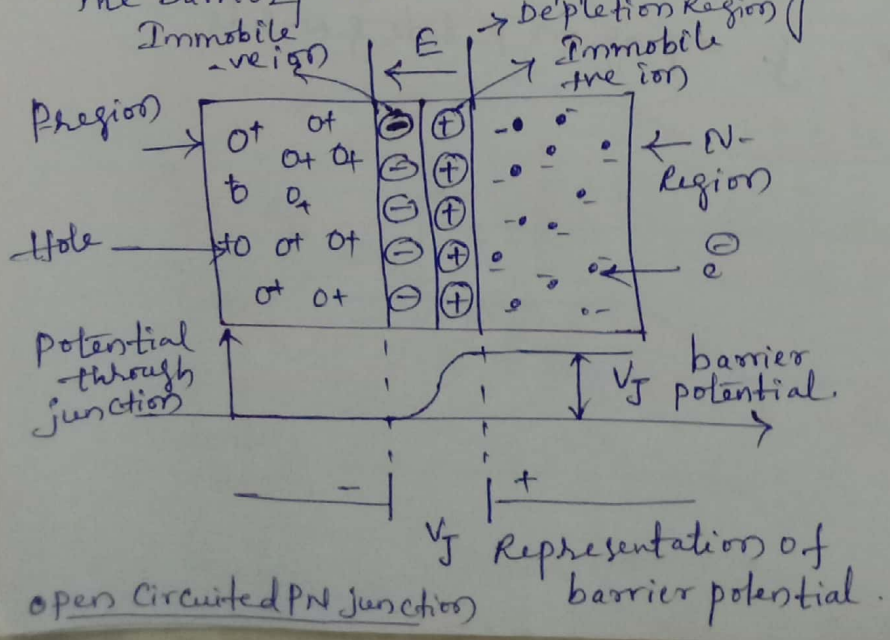 The barrier
→ Depletion Region
Immobile
-ve ion
E
Immobile
+ve ion
P region
N-
Region
Hole
⊖
e
Potential
through
junction
VJ
barrier
potential.
-
+
VJ
Representation of
barrier potential.
open Circuited PN junction